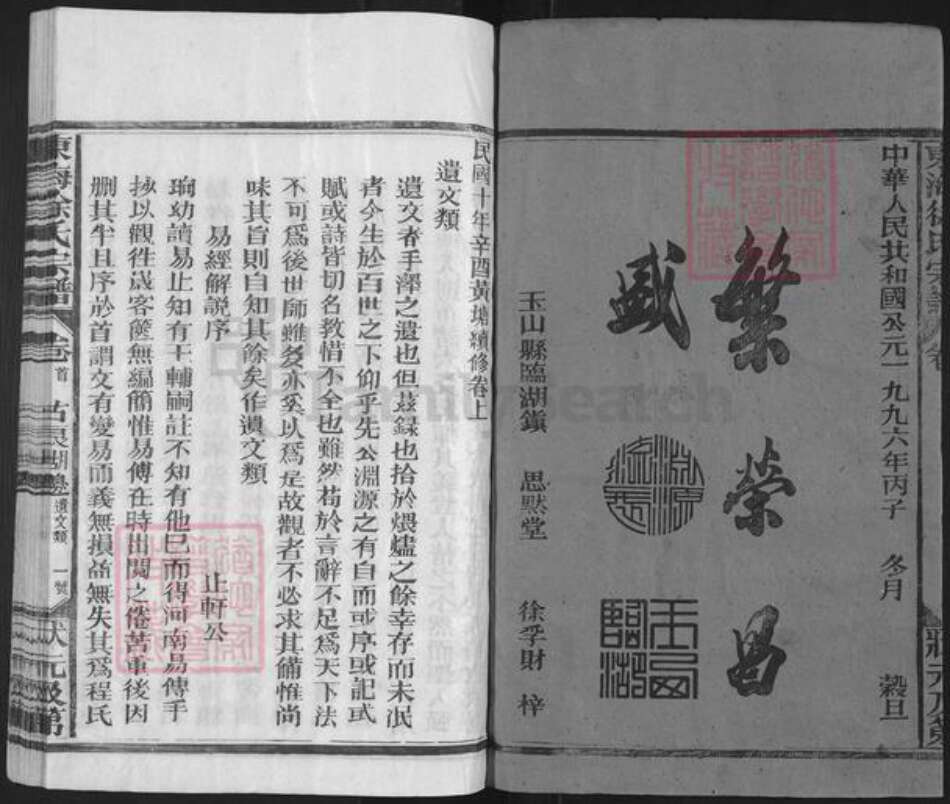 中華人民共和國公元一九九六年丙子 冬月 穀旦
繁榮昌
盛
淵源
玉山
臨湖
玉山縣臨湖鎮 思默堂 徐孚財 梓
民國十年辛酉黃塘續修卷上
遺文類
遺文者手澤之遺也但茲錄也拾於煨爐之餘幸存而未泯
者今生於百世之下仰乎先公淵源之有自而或序或記或
賦或詩皆切名教惜不全也雖然茍於言辭不足爲天下法
不可爲後世師雖多亦奚以爲是故觀者不必求其備惟尚
味其旨則自知其餘矣作遺文類
易經解說序 止軒公
珦幼讀易止知有王輔嗣註不知有他已而得河南易傳手
抄以觀徃歲客篋無編簡惟易傳在時出閱之倦苦重後因
刪其半且序於首謂文有變易而義無損益無失其爲程氏
東海徐氏宗譜 卷首 古良湖邊 遺文類 一號 狀元及第
FamilySearch